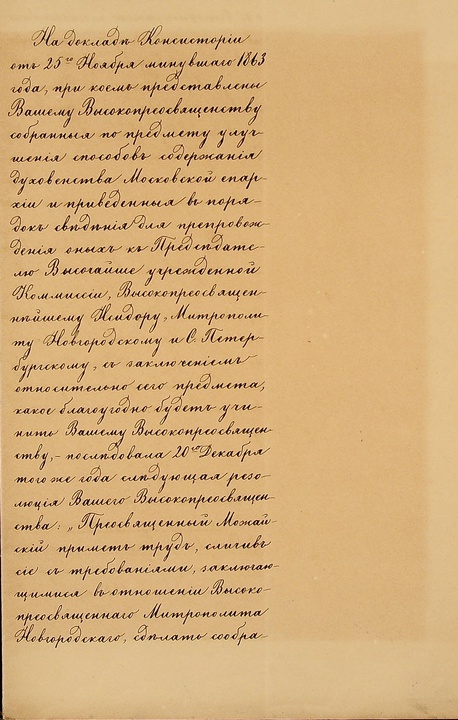 На докладъ Консисторіи
отъ 25го Ноября минувшаго 1863
года, при коемъ представлены
Вашему Высокопреосвященству
собранныя по предмету улуч-
шенія способовъ содержанія
духовенства Московской епар-
хіи и приведенныя въ поря-
докъ свѣдѣнія для препровож-
денія оныхъ къ Предсѣдате-
лю Высочайше учрежденной
Коммиссіи, Высокопреосвящен-
нѣйшему Исидору, Митрополи-
ту Новгородскому и С. Петер-
бургскому, съ заключеніемъ
относительно сего предмета,
какое благоугодно будетъ учи-
нить Вашему Высокопреосвящен-
ству, - послѣдовала 20го Декабря
того же года слѣдующая резо-
люція Вашего Высокопреосвящен-
ства: „Преосвященный Можай-
скій приметъ трудъ, сличивъ
сіе съ требованіями, заключаю-
щимися въ отношеніи Высоко-
преосвященнаго Митрополита
Новгородскаго, сдѣлать сообра-